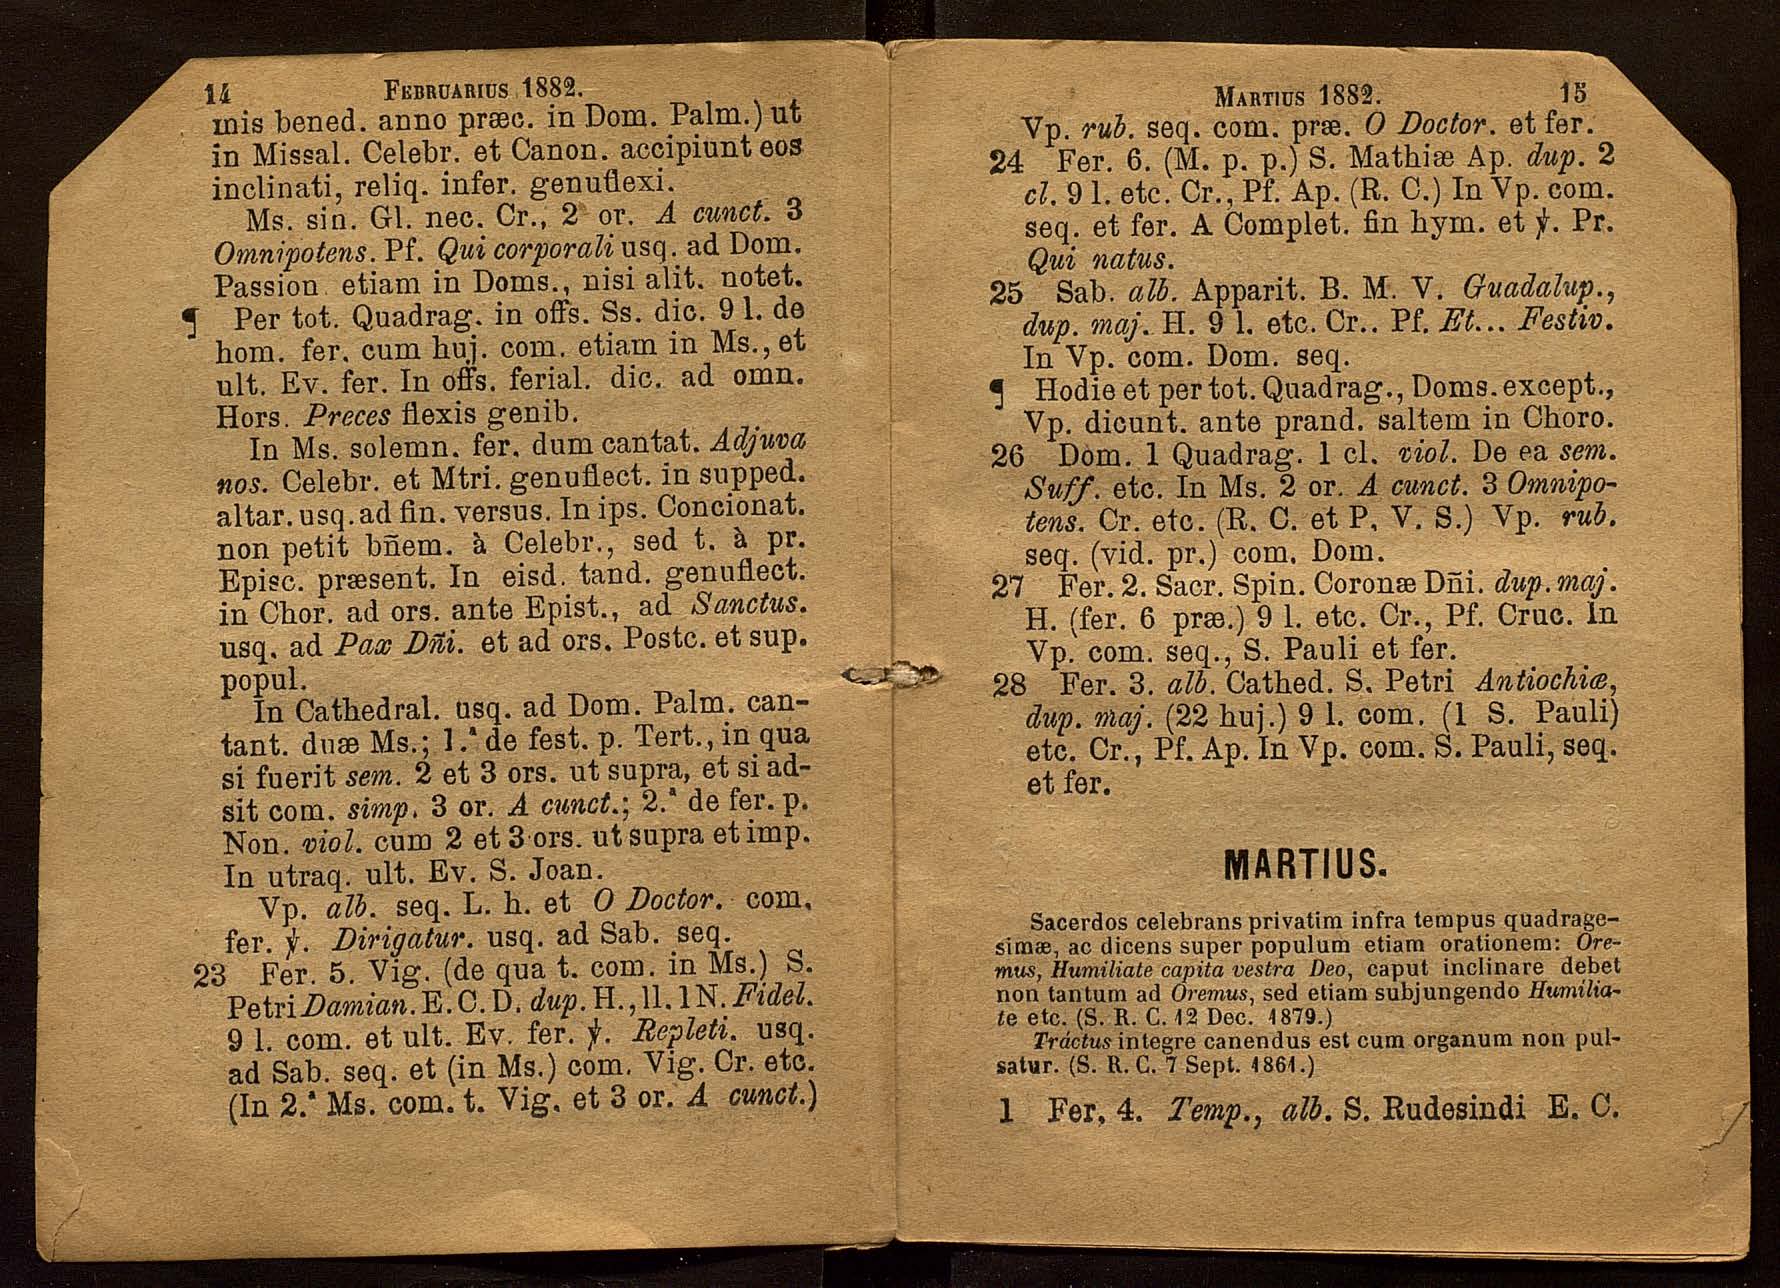 14 FEBRUARIUS 1882.
mis bened. anno præc. in Dom. Palm.) ut
in Missal. Celebr. et Canon. accipiunt eos
inclinati, reliq. infer. genuflexi.
Ms. sin. Gl. nec. Cr., 2 or. A cunct. 3
Omnipotens. Pf. Qui corporali usq. ad Dom.
Passion etiam in Doms., nisi alit. notet.
¶ Per tot. Quadrag. in offs. Ss. dic. 9 l. de
hom. fer. cum huj. com. etiam in Ms., et
ult. Ev. fer. In offs. ferial. dic. ad omn.
Hors. Preces flexis genib.
In Ms. solemn. fer. dum cantat. Adjuva
nos. Celebr. et Mtri. genuflect. in supped.
altar. usq. ad fin. versus. In ips. Concionat.
non petit bñem. à Celebr., sed t. à pr.
Episc. præsent. In eisd. tand. genuflect.
in Chor. ad ors. ante Epist., ad Sanctus.
usq. ad Pax Dñi. et ad ors. Postc. et sup.
popul.
In Cathedral. usq. ad Dom. Palm. can-
tant. duæ Ms.; 1.ª de fest. p. Tert., in qua
si fuerit sem. 2 et 3 ors. ut supra, et si ad-
sit com. simp. 3 or. A cunct.; 2.ª de fer. p.
Non. viol. cum 2 et 3 ors. ut supra et imp.
In utraq. ult. Ev. S. Joan.
Vp. alb. seq. L. h. et O Doctor. com.
fer. ℣. Dirigatur. usq. ad Sab. seq.
23 Fer. 5. Vig. (de qua t. com. in Ms.) S.
Petri Damian. E. C. D. dup. H., ll. 1 N. Fidel.
9 l. com. et ult. Ev. fer. ℣. Repleti. usq.
ad Sab. seq. et (in Ms.) com. Vig. Cr. etc.
(In 2.ª Ms. com. t. Vig. et 3 or. A cunct.)
MARTIUS 1882. 15
Vp. rub. seq. com. præ. O Doctor. et fer.
24 Fer. 6. (M. p. p.) S. Mathiæ Ap. dup. 2
cl. 9 l. etc. Cr., Pf. Ap. (R. C.) In Vp. com.
seq. et fer. A Complet. fin hym. et ℣. Pr.
Qui natus.
25 Sab. alb. Apparit. B. M. V. Guadalup.,
dup. maj. H. 9 l. etc. Cr.. Pf. Et... Festiv.
In Vp. com. Dom. seq.
¶ Hodie et per tot. Quadrag., Doms. except.,
Vp. dicunt. ante prand. saltem in Choro.
26 Dom. 1 Quadrag. 1 cl. viol. De ea sem.
Suff. etc. In Ms. 2 or. A cunct. 3 Omnipo-
tens. Cr. etc. (R. C. et P. V. S.) Vp. rub.
seq. (vid. pr.) com. Dom.
27 Fer. 2. Sacr. Spin. Coronæ Dñi. dup. maj.
H. (fer. 6 præ.) 9 l. etc. Cr., Pf. Cruc. In
Vp. com. seq., S. Pauli et fer.
28 Fer. 3. alb. Cathed. S. Petri Antiochiæ,
dup. maj. (22 huj.) 9 l. com. (1 S. Pauli)
etc. Cr., Pf. Ap. In Vp. com. S. Pauli, seq.
et fer.
MARTIUS.
Sacerdos celebrans privatim infra tempus quadrage-
simæ, ac dicens super populum etiam orationem: Ore-
mus, Humiliate capita vestra Deo, caput inclinare debet
non tantum ad Oremus, sed etiam subjungendo Humilia-
te etc. (S. R. C. 12 Dec. 1879.)
Tráctus integre canendus est cum organum non pul-
satur. (S. R. C. 7 Sept. 1861.)
1 Fer. 4. Temp., alb. S. Rudesindi E. C.